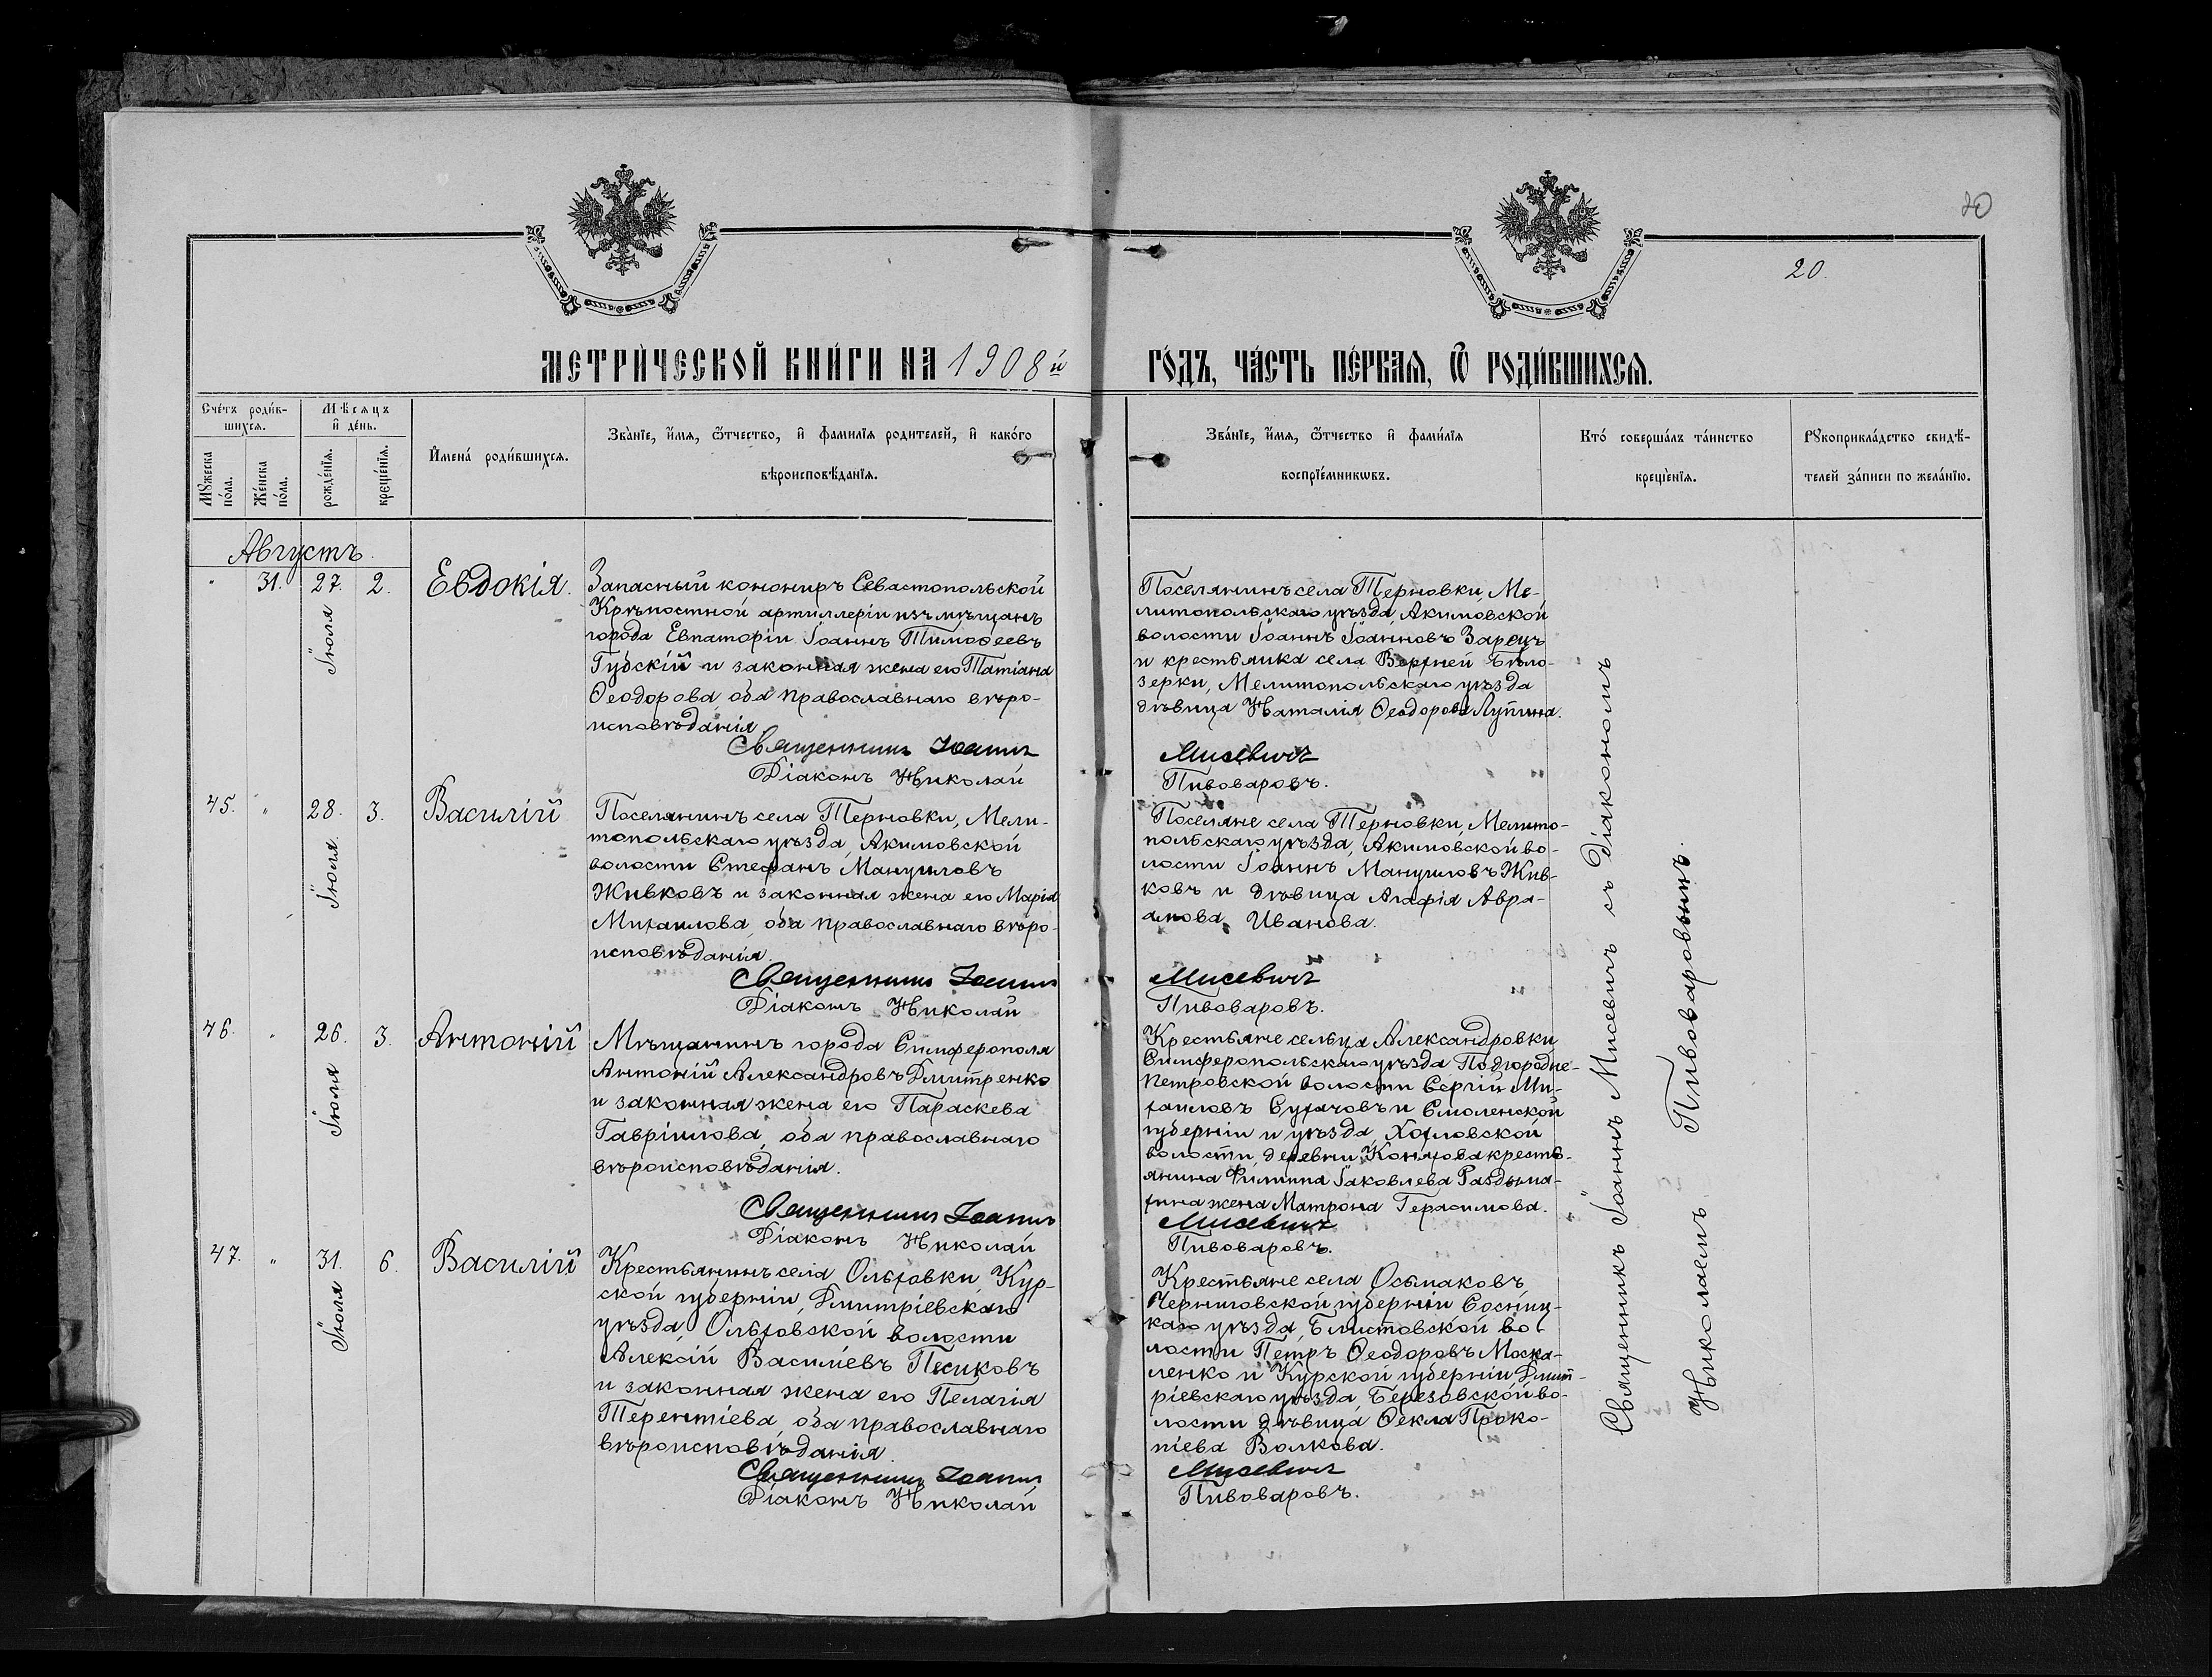 20
20.
МЕТРИ́ЧЕСКОЙ КНИ́ГИ НА 1908й
ГО́ДЪ, ЧА́СТЬ ПЕ́РВАЯ, Ѿ РОДИ́ВШИХСЯ.
Сче́тъ роди́в-
шихся.
Мꙋжеска по́ла.
Же́нска по́ла.
Мѣ́сяцъ
и де́нь.
рожде́нїя.
креще́нїя.
Имена́ роди́вшихся.
Зва́нїе, и́мя, ѻ́тчество, и фами́лїя родителей, и како́го
вѣроисповѣ́данїя.
Зва́нїе, и́мя, ѻ́тчество и фами́лїя
воспрїе́мникѡвъ.
Кто́ соверша́лъ та́инство
креще́нїя.
Рꙋкоприкла́дство свидѣ́-
телей за́писи по жела́нїю.
Августъ.
" 31. 27. 2. Евдокія.
Іюля
Запасный конониръ Севастопольской
Крѣпостной артиллеріи изъ мѣщанъ
города Евпаторіи Іоаннъ Тимоѳеевъ
Губскій и законная жена его Татіана
Ѳеодорова, оба православнаго вѣро-
исповѣданія
Священникъ Іоаннъ
Діаконъ Николай
Поселянинъ села Терновки, Ме-
литопольскаго уѣзда, Акимовской
волости Іоаннъ Іоанновъ Зарецъ
и крестьянка села Верхней Бѣло-
зерки, Мелитопольскаго уѣзда
дѣвица Наталія Ѳеодорова Лупина.
Мисевичъ
Пивоваровъ.
45. " 28. 3. Василій
Іюля.
Поселянинъ села Терновки, Мели-
топольскаго уѣзда, Акимовской
волости Стефанъ Мануиловъ
Живковъ и законная жена его Марія
Михаилова, оба православнаго вѣро-
исповѣданія.
Священникъ Іоаннъ
Діаконъ Николай
Поселяне села Терновки, Мелито-
польскаго уѣзда, Акимовской во-
лости Іоаннъ Мануиловъ Жив-
ковъ и дѣвица Агафія Авра-
амова Иванова.
Мисевичъ
Пивоваровъ.
46. " 26. 3. Антоній
Іюля
Мѣщанинъ города Симферополя
Антоній Александровъ Дмитренко
и законная жена его Параскева
Гавріилова, оба православнаго
вѣроисповѣданія.
Священникъ Іоаннъ
Діаконъ Николай
Крестьяне сельца Александровки
Симферопольскаго уѣзда Подгородне-
Петровской волости Сергій Ми-
хаиловъ Сухачовъ и Смоленской
губерніи и уѣзда, Хохловской
волости, деревни Концова кресть-
янина Филиппа Іаковлева
жена Матрона Герасимова.
Мисевичъ
Пивоваровъ.
47. " 31. 6. Василій
Іюля
Крестьянинъ села Ольховки, Кур-
ской губерніи, Дмитріевскаго
уѣзда, Ольховской волости
Алексій Василіевъ Песиковъ
и законная жена его Пелагія
Терентіева, оба православнаго
вѣроисповѣданія.
Священникъ Іоаннъ
Діаконъ Николай
Крестьяне села Осьмаковъ
Черниговской губерніи Сосниц-
каго уѣзда, Блистовской во-
лости Петръ Ѳеодоровъ Моска-
ленко и Курской губерніи Дмит-
ріевскаго уѣзда, Березовской во-
лости дѣвица Ѳекла Проко-
піева Волкова.
Мисевичъ
Пивоваровъ.
Священникъ Іоаннъ Мисевичъ съ Діакономъ
Николаемъ Пивоваровымъ.